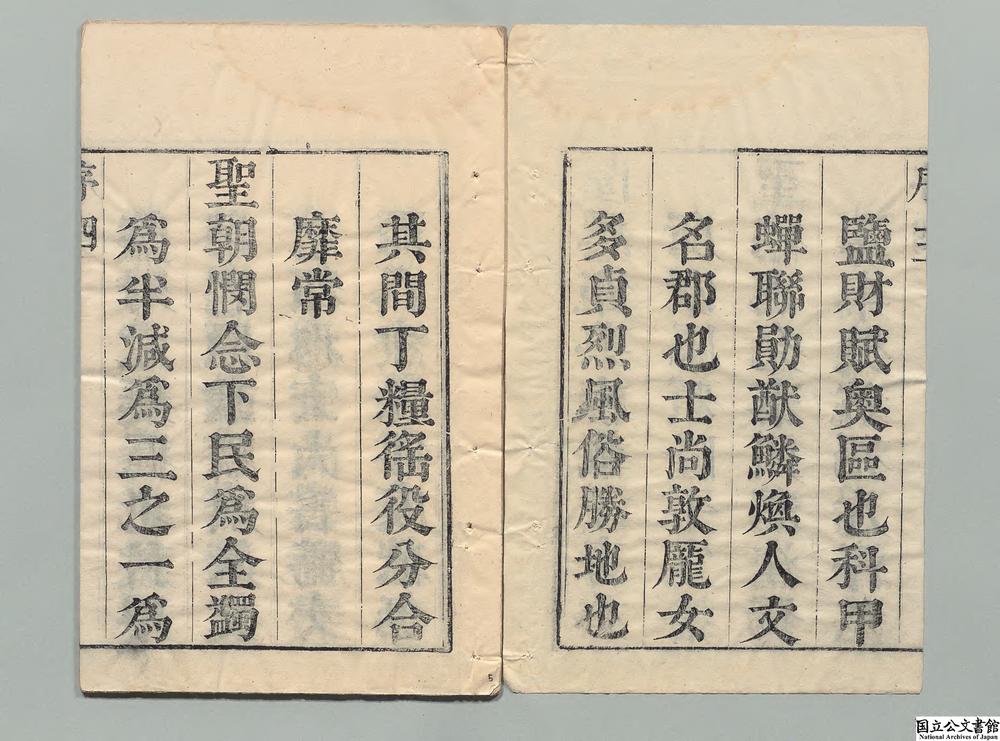 鹽財賦奧區也科甲
蟬聯勛猷鱗煥人文
名郡也士尚敦龐女
多貞烈風俗勝地也
其間丁糧徭役分合
靡常
聖朝憫念下民爲全蠲
爲半減爲三之一爲
序四
5
国立公文書館
National Archives of Japan